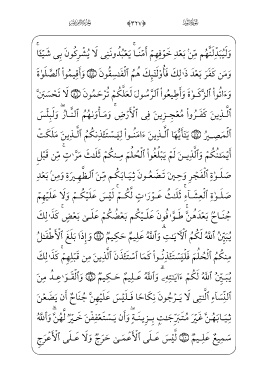 وَلَيُبَدِّلَنَّهُم مِّنۢ بَعْدِ خَوْفِهِمْ أَمْنًا ۚ يَعْبُدُونَنِى لَا يُشْرِكُونَ بِى شَيْـًٔا ۚ
وَمَن كَفَرَ بَعْدَ ذَٰلِكَ فَأُو۟لَـٰٓئِكَ هُمُ ٱلْفَـٰسِقُونَ ۝ وَأَقِيمُوا۟ ٱلصَّلَوٰةَ
وَءَاتُوا۟ ٱلزَّكَوٰةَ وَأَطِيعُوا۟ ٱلرَّسُولَ لَعَلَّكُمْ تُرْحَمُونَ ۝ لَا تَحْسَبَنَّ
ٱلَّذِينَ كَفَرُوا۟ مُعْجِزِينَ فِى ٱلْأَرْضِ ۚ وَمَأْوَىٰهُمُ ٱلنَّارُ ۖ وَلَبِئْسَ
ٱلْمَصِيرُ ۝ يَـٰٓأَيُّهَا ٱلَّذِينَ ءَامَنُوا۟ لِيَسْتَـْٔذِنكُمُ ٱلَّذِينَ مَلَكَتْ
أَيْمَـٰنُكُمْ وَٱلَّذِينَ لَمْ يَبْلُغُوا۟ ٱلْحُلُمَ مِنكُمْ ثَلَـٰثَ مَرَّٰتٍ ۚ مِّن قَبْلِ
صَلَوٰةِ ٱلْفَجْرِ وَحِينَ تَضَعُونَ ثِيَابَكُم مِّنَ ٱلظَّهِيرَةِ وَمِنۢ بَعْدِ
صَلَوٰةِ ٱلْعِشَآءِ ۚ ثَلَـٰثُ عَوْرَٰتٍ لَّكُمْ ۚ لَيْسَ عَلَيْكُمْ وَلَا عَلَيْهِمْ
جُنَاحٌۢ بَعْدَهُنَّ ۚ طَوَّٰفُونَ عَلَيْكُم بَعْضُكُمْ عَلَىٰ بَعْضٍ ۚ كَذَٰلِكَ
يُبَيِّنُ ٱللَّهُ لَكُمُ ٱلْـَٔايَـٰتِ ۗ وَٱللَّهُ عَلِيمٌ حَكِيمٌ ۝ وَإِذَا بَلَغَ ٱلْأَطْفَـٰلُ
مِنكُمُ ٱلْحُلُمَ فَلْيَسْتَـْٔذِنُوا۟ كَمَا ٱسْتَـْٔذَنَ ٱلَّذِينَ مِن قَبْلِهِمْ ۚ كَذَٰلِكَ
يُبَيِّنُ ٱللَّهُ لَكُمْ ءَايَـٰتِهِۦ ۗ وَٱللَّهُ عَلِيمٌ حَكِيمٌ ۝ وَٱلْقَوَٰعِدُ مِنَ
ٱلنِّسَآءِ ٱلَّـٰتِى لَا يَرْجُونَ نِكَاحًا فَلَيْسَ عَلَيْهِنَّ جُنَاحٌ أَن يَضَعْنَ
ثِيَابَهُنَّ غَيْرَ مُتَبَرِّجَـٰتٍۭ بِزِينَةٍ ۖ وَأَن يَسْتَعْفِفْنَ خَيْرٌ لَّهُنَّ ۗ وَٱللَّهُ
سَمِيعٌ عَلِيمٌ ۝ لَّيْسَ عَلَى ٱلْأَعْمَىٰ حَرَجٌ وَلَا عَلَى ٱلْأَعْرَجِ